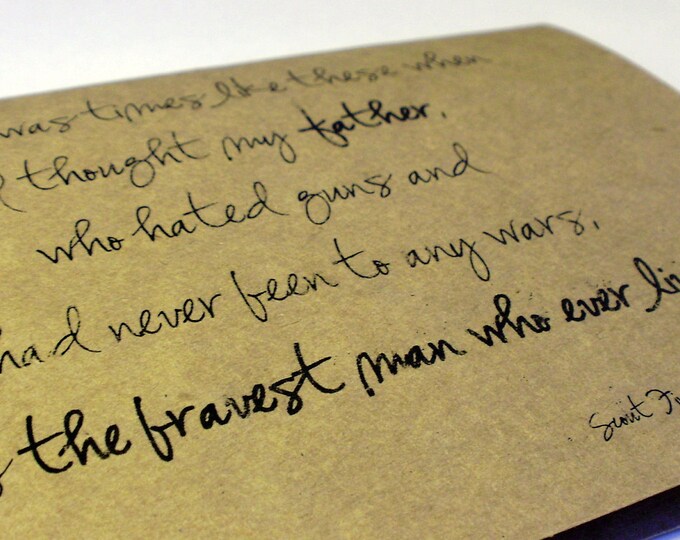 was times like these when
I thought my father,
who hated guns and
had never been to any wars,
the bravest man who ever
Scout